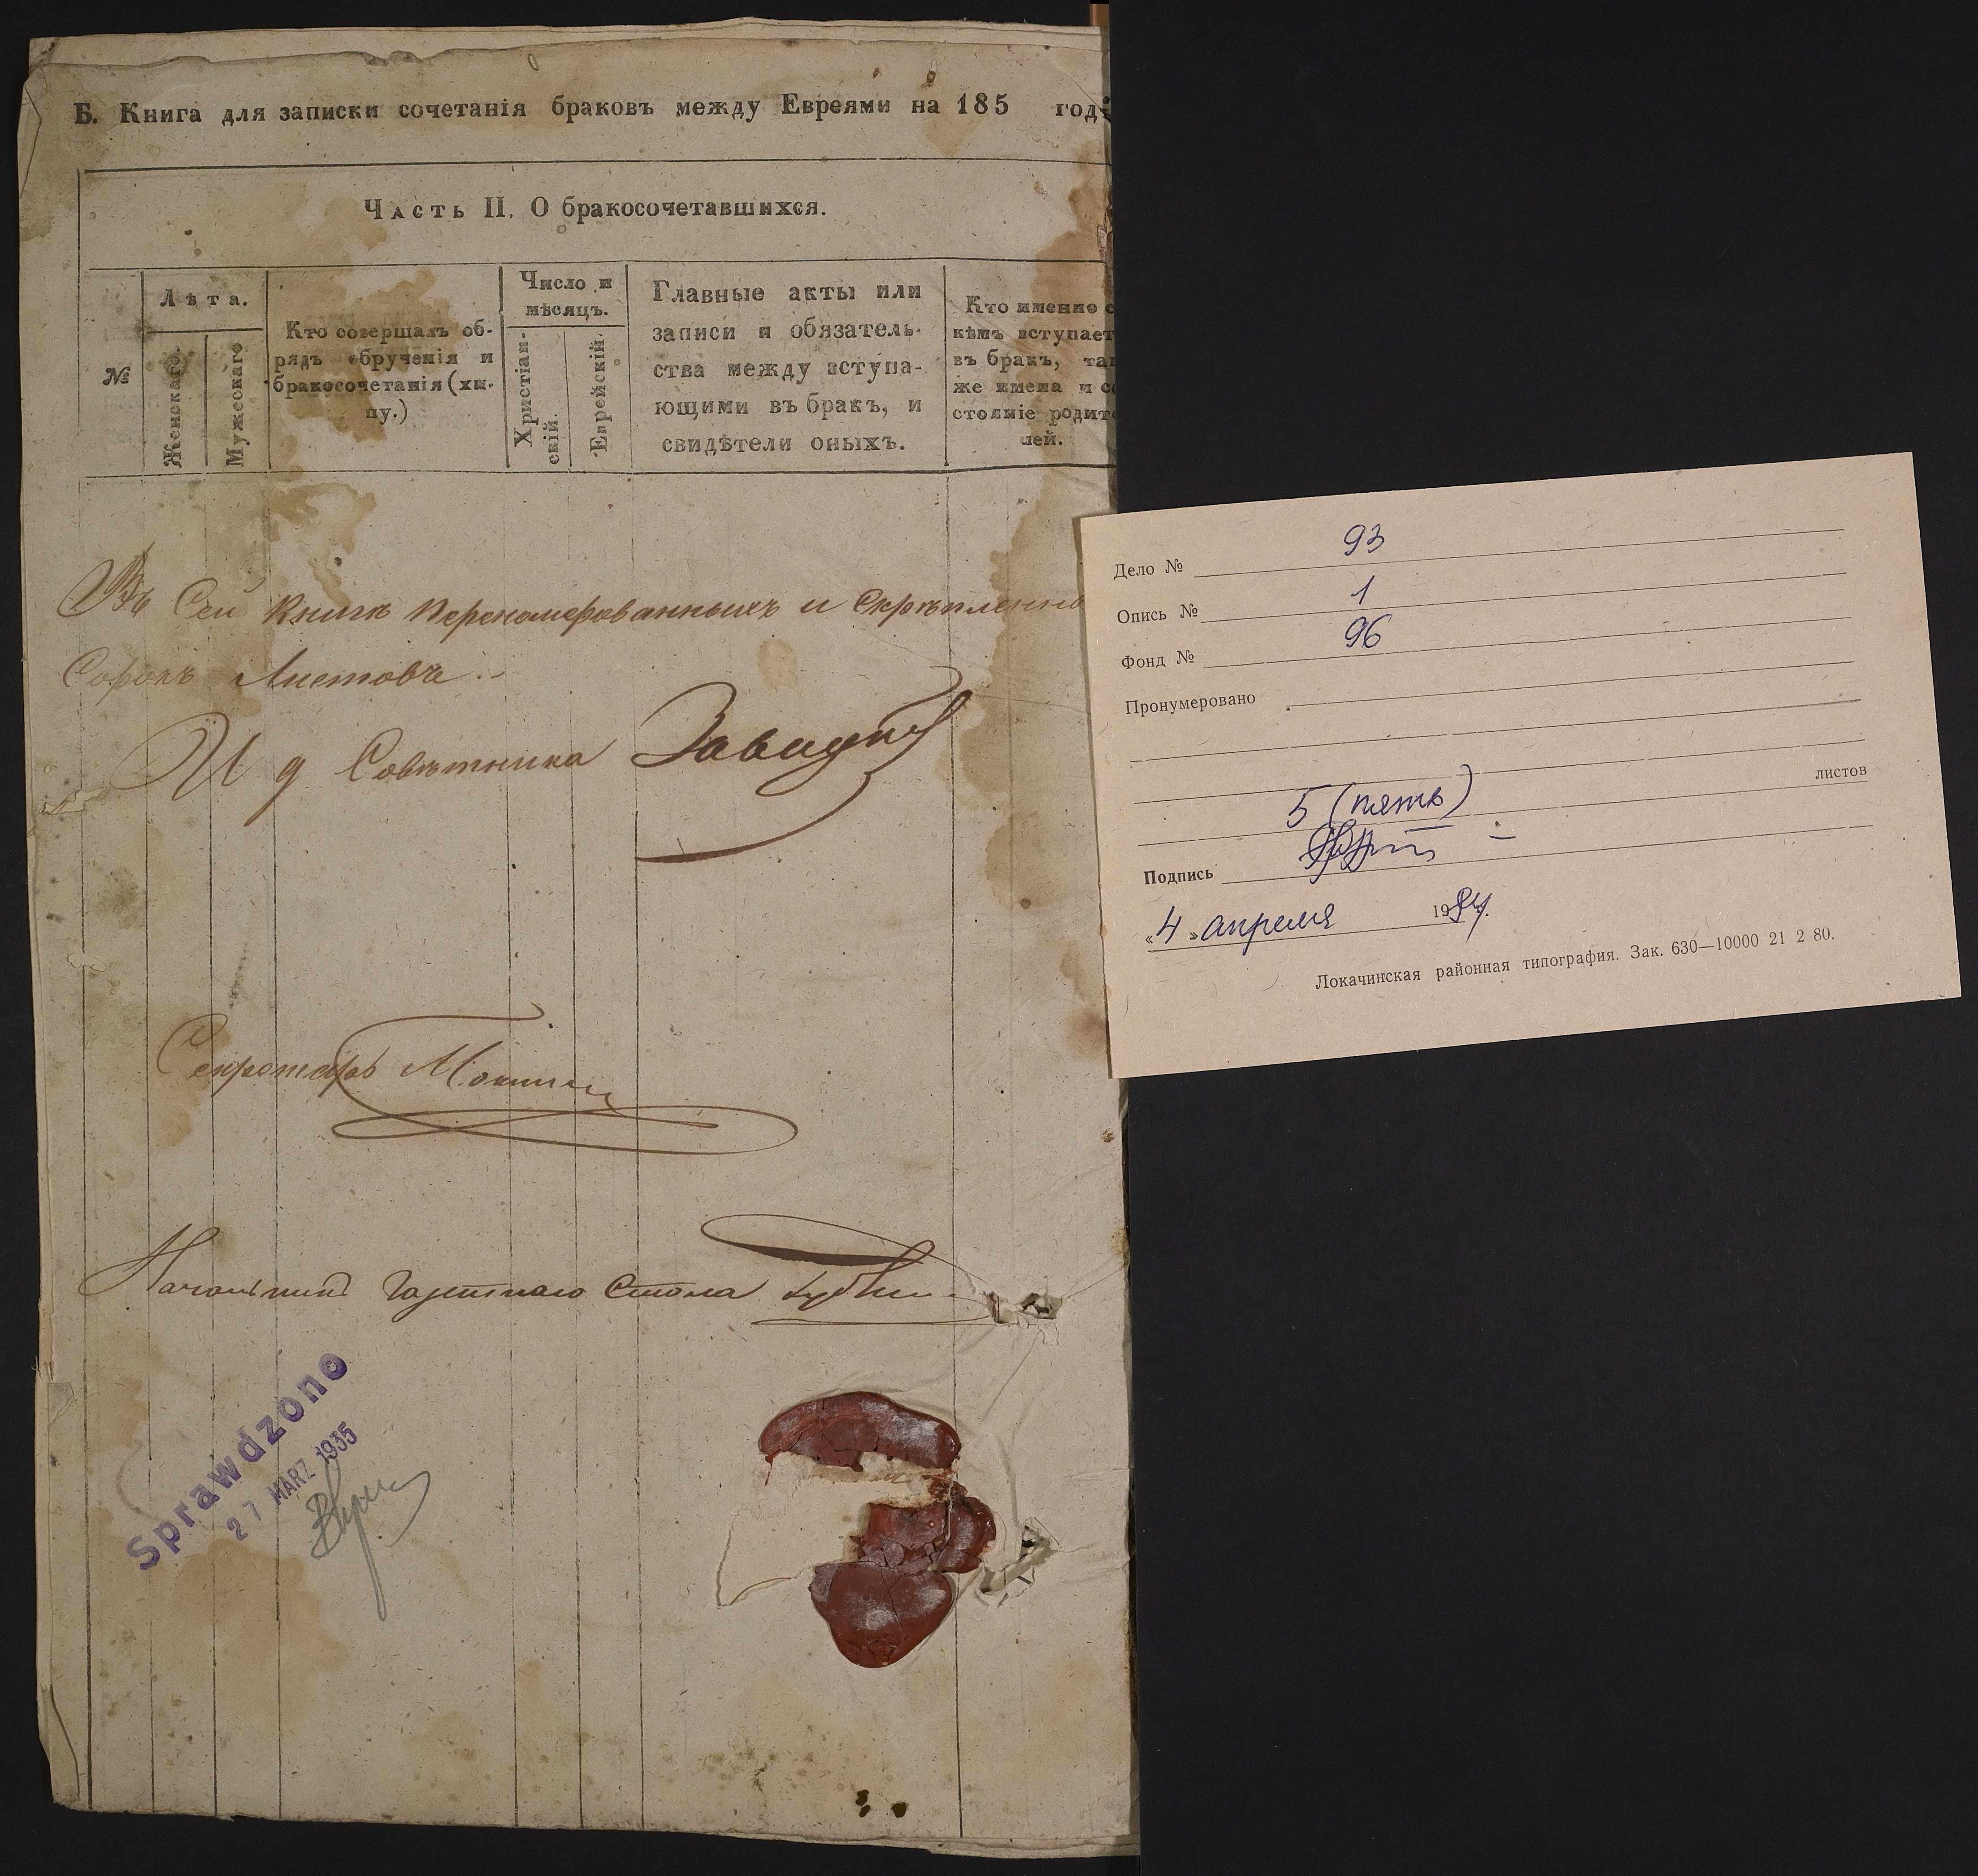 Б. Книга для записки сочетанія браковъ между Евреями на 185 год
Часть II. О бракосочетавшихся.
№
Лѣта.
Женскаго.
Мужескаго
Кто совершалъ об-
рядъ обрученія и
бракосочетанія (хи-
пу.)
Число и
мѣсяцъ.
Христіан-
скій.
Еврейскій.
Главные акты или
записи и обязатель-
ства между вступа-
ющими въ бракъ, и
свидѣтели оныхъ.
Кто именно с
кѣмъ вступает
въ бракъ, так
же имена и со
стояніе родите
лей.
Въ Сей Книгѣ Перенумерованныхъ и Скрѣпленно
Сорокъ Листовъ.
И д Совѣтника
Секретарь
Начальникъ Газетнаго Стола
Sprawdzono
27 MARZ 1935
Дело № 93
Опись № 1
Фонд № 96
Пронумеровано
листов
5 (пять)
Подпись
«4» апреля 1984.
Локачинская районная типография. Зак. 630—10000 21 2 80.